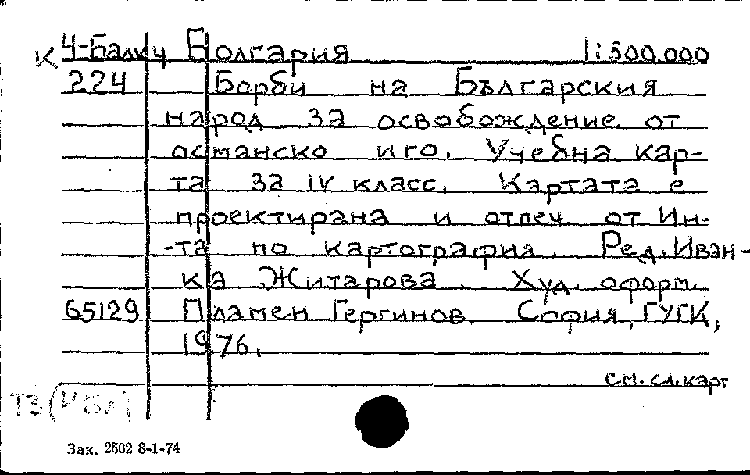 К Ч-Балк Ч Болгария 1:500.000
224 Борби на Българския
народ за освобождение от
османско иго. Учебна кар-
та за IV класс. Картата е
проектирана и отпеч. от Ин-
-та по картография. Ред. Иван-
ка Житарова. Худ. оформ.
65129 Пламен Гергинов. София, ГУГК,
1976.
см. сл. карт
Т3
Зак. 2502 8-1-74